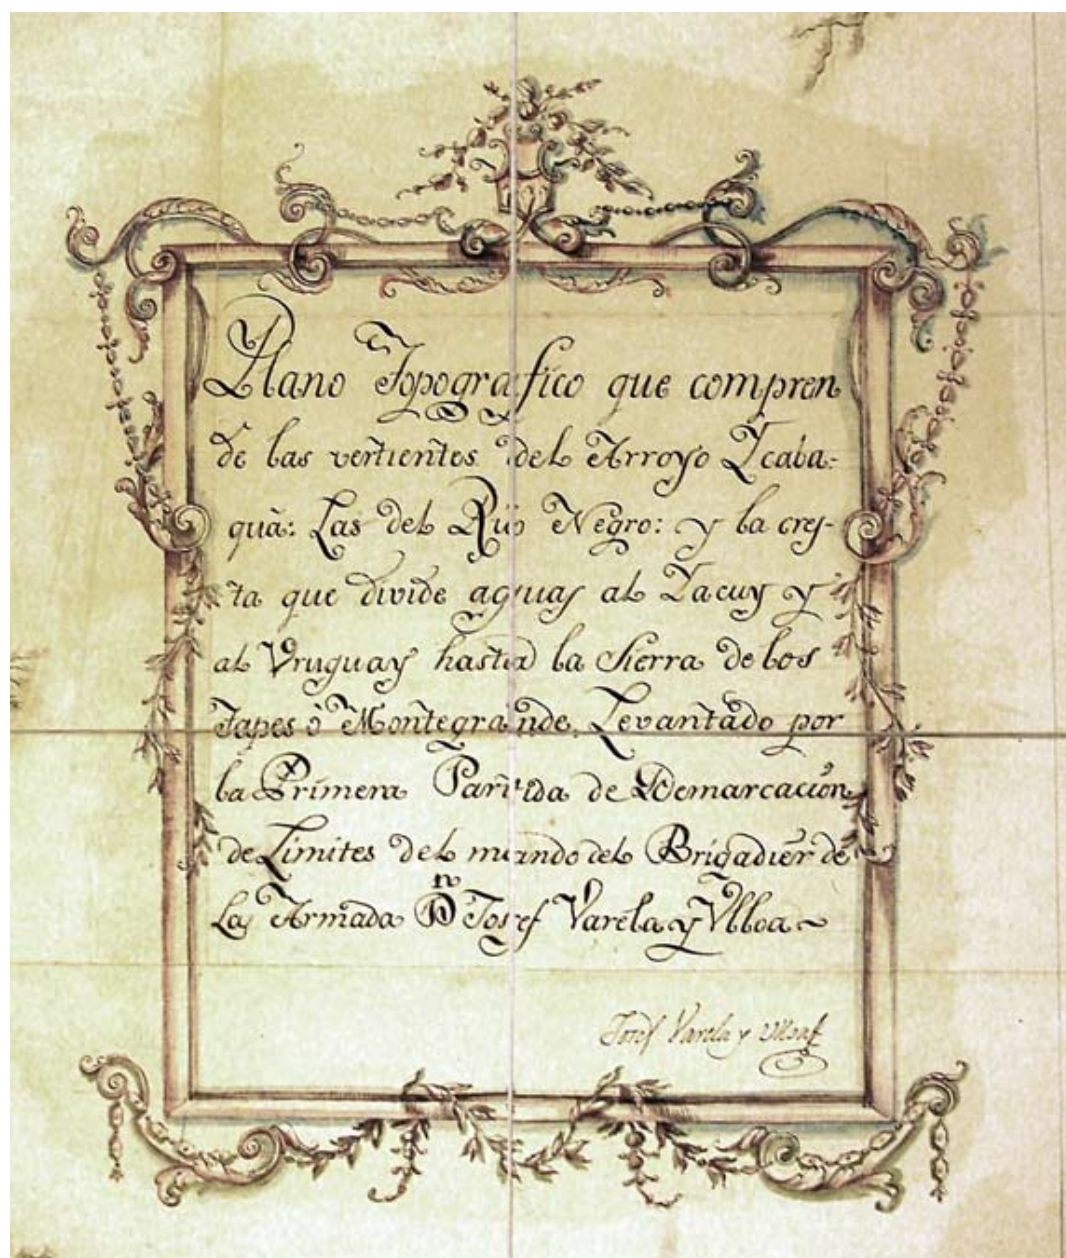 Plano Topografico que compren
de las vertientes del Arroyo Ycaba-
quà: Las del Rio Negro: y la cres-
ta que divide aguas al Yacuy y
al Uruguay hasta la Sierra de los
Tapes ò Montegrande. Levantado por
la Primera Partida de Demarcación
de Limites del mando del Brigadier de
la Armada Dn Josef Varela y Ulloa~
Josef Varela y Ulloa